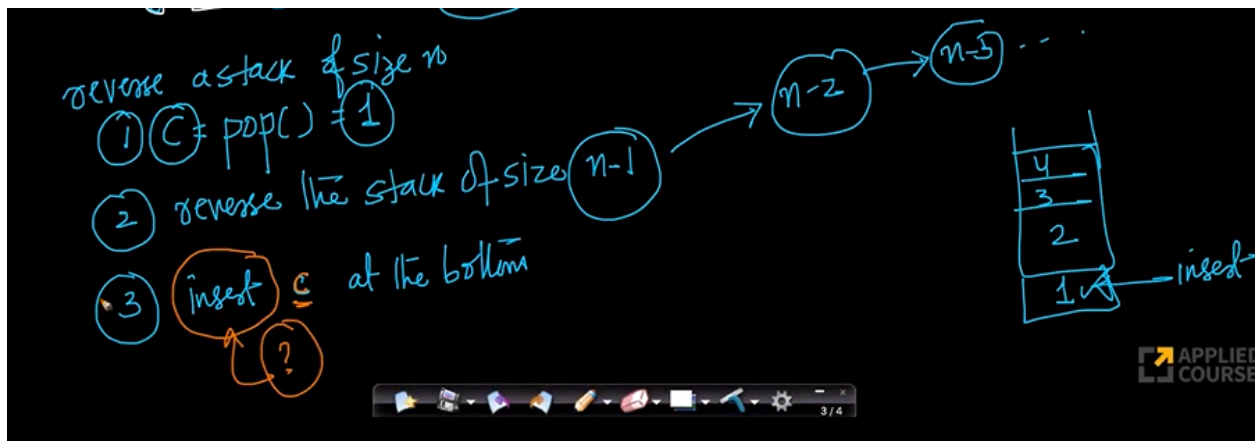 reverse a stack of size n
① C = pop() = 1
② reverse the stack of size n-1 → n-2 → n-3 ....
③ insert c at the bottom
?
4
3
2
1 ← insert
APPLIED
COURSE
3/4